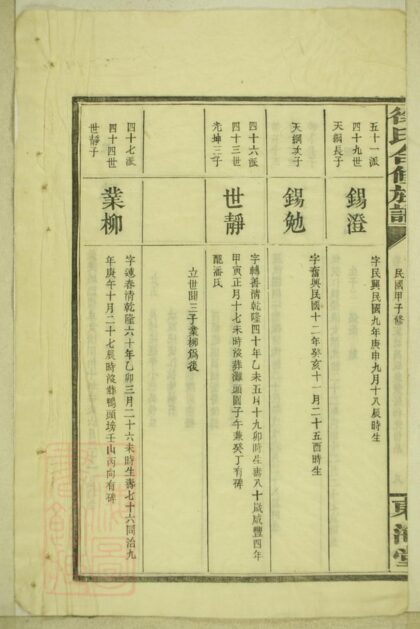 徐氏合修族譜
民國甲子修
東海堂
五十一派
四十九世
天綱長子
錫澄
字民興民國九年庚申九月十八辰時生
天綱次子
錫勉
字奮興民國十二年癸亥十一月二十五酉時生
四十六派
四十三世
光坤三子
世靜
字轉善清乾隆四十年乙未五月十九卯時生壽八十歲咸豐四年
甲寅正月十七未時歿葬灘頭園子午兼癸丁有碑
配潘氏
立世闘三子業柳爲後
四十七派
四十四世
世靜子
業柳
字鏈春清乾隆六十年乙卯三月二十六未時生壽七十六同治九
年庚午十月二十七辰時歿葬鴨頭塝壬山丙向有碑